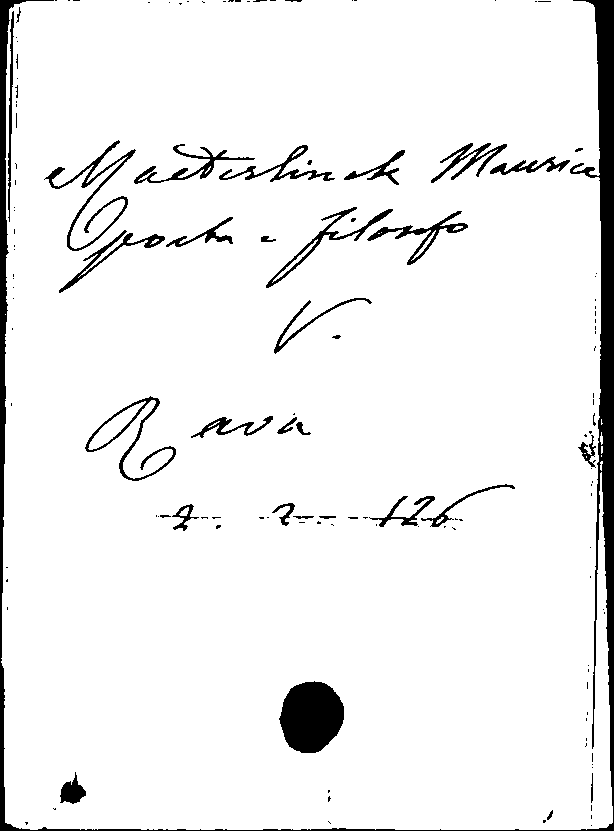 Maeterlinck Maurice
poeta e filosofo
V.
Rava
2. 2. 126